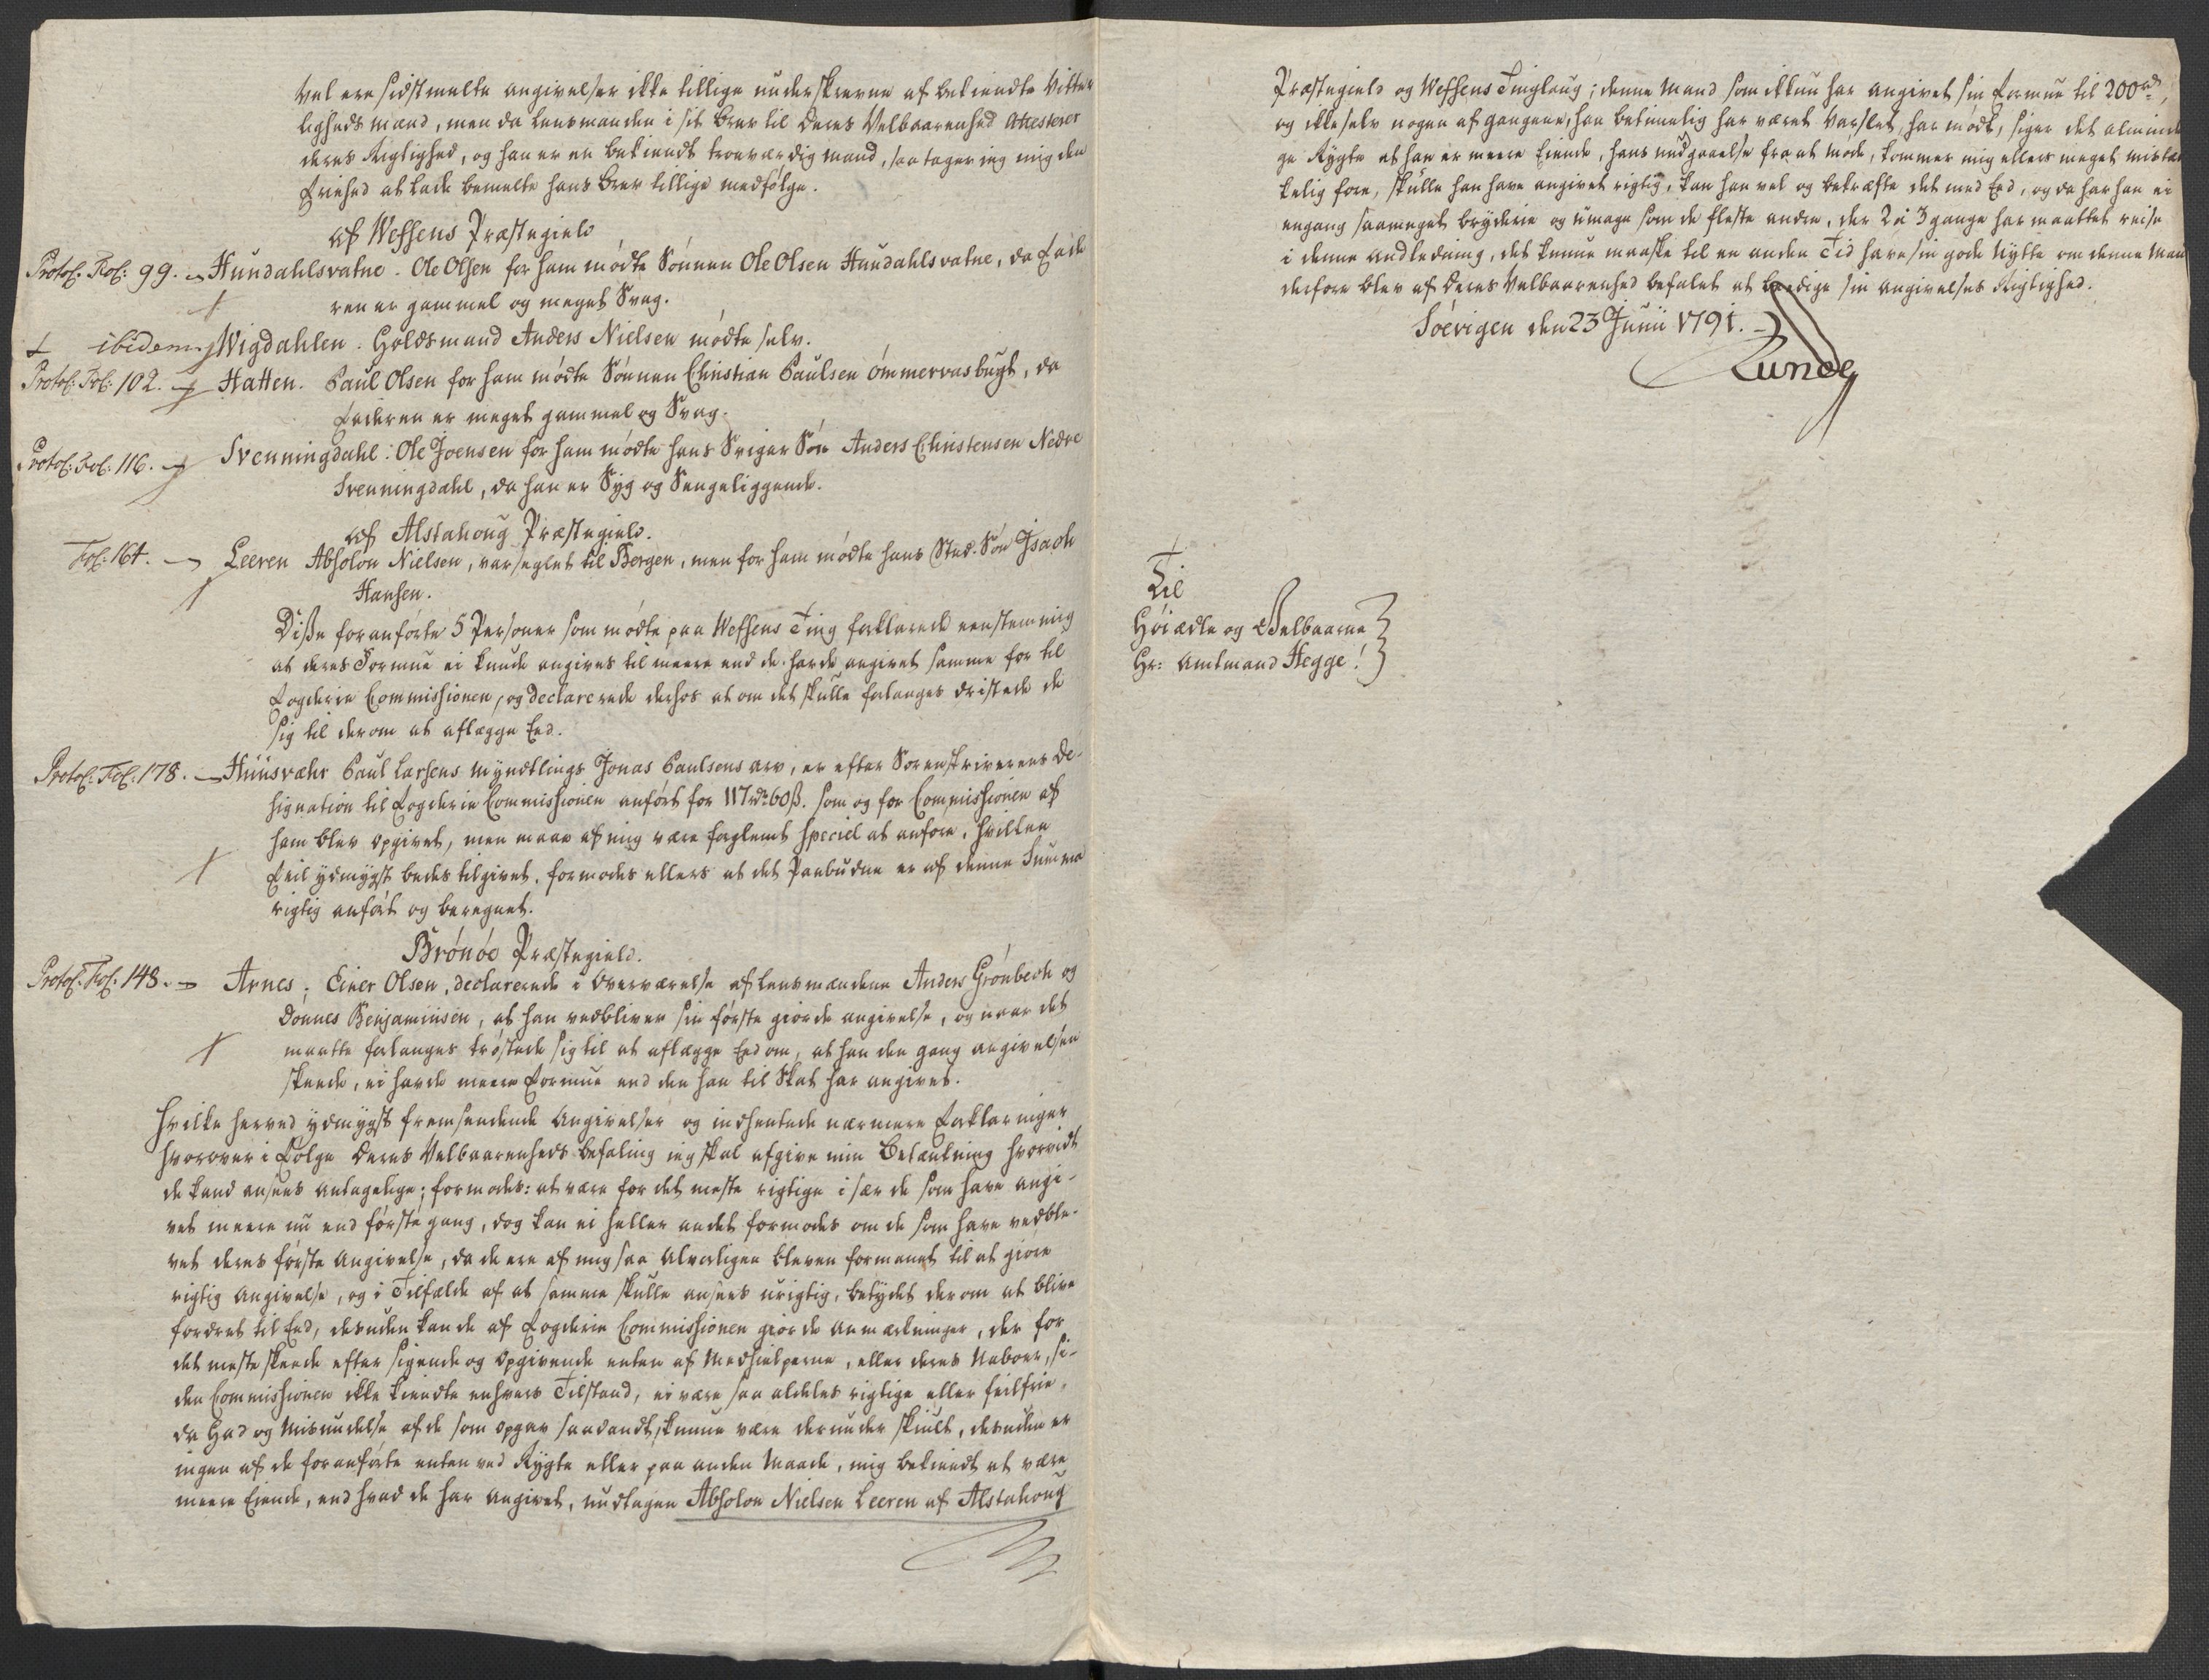 Vel ere sidstmelte angivelser ikke tillige underskrevne af bekiendte Vitter
ligheds mænd, men da lensmanden i sit brev til Deres Velbaarenhed Attesterer
deres Rigtighed, og han er en bekiendt troeværdig mand, saa tager ieg mig den
Friehed at lade bemelte hans brev tillige medfølge.
af Wefsens Præstegield
Protoc: Fol: 99. Hundahlsvatne. Ole Olsen for ham mødte Sønnen Ole Olsen Hundahlsvatne, da Fade
ren er gammel og meget Svag.
ibidem. Wigdahlen. Holdsmand Anders Nielsen mødte selv.
Protoc: Fol: 102. Hatten. Paul Olsen for ham mødte Sønnen Christian Paulsen ømmervasbugt, da
Faderen er meget gammel og Svag.
Protoc: Fol: 116. Svenningdahl: Ole Joensen for ham mødte hans Sviger Søn Anders Christensen Nedre
Svenningdahl, da han er Syg og Sengeliggende.
af Alstahoug Præstegield.
Fol: 164. Leeren Absolon Nielsen, var seglet til Bergen, men for ham mødte hans Sted-Søn Isach
Hansen.
Disse foranførte 5 Personer som mødte paa Wefsens Ting forklarede eenstemmig
at deres Formue ei kunde angives til meere end de havde angivet samme for til
Fogderie Commissionen, og declarerede derhos at om det skulle forlanges dristede de
sig til derom at aflægge Eed.
Protoc: Fol: 178. Huusvæhr Paul Larsens Myndtlings Jonas Paulsens arv, er efter Sorenskriverens De-
signation til Fogderie Commissionen anført for 117 rdr 60 ß. som og for Commissionen af
ham blev opgivet, men maae af mig være forglemt speciel at anføre, hvilken
Feil ydmygst bedes tilgivet, formodes ellers at det Paabudne er af denne Summa
rigtig anført og beregnet.
Brønøe Præstegield.
Protoc: Fol: 148. Arnes; Einer Olsen, declarerede i Overværelse af lensmændene Anders Grønbech og
Donnes Benjaminsen, at han vedbliver sin første giorde angivelse, og naar det
maatte forlanges trøstede sig til at aflægge Eed om, at han den gang angivelsen
skeede, ei havde meere Formue end den han til Skat har angivet.
Hvilke herved ydmygst fremsendende Angivelser og indhentede nærmere Forklaringer
hvorover i Følge Deres Velbaarenheds befaling ieg skal afgive min Betænkning hvorvidt
de kand ansees antagelige; formodes: at være for det meste rigtige i sær de som have angi-
vet meere nu end første gang, dog kan ei heller andet formodes om de som have vedble-
vet deres første Angivelse, da de ere af mig saa alvorligen bleven formanet til at giøre
rigtig Angivelse, og i Tilfælde af at samme skulle ansees urigtig, betydet derom at blive
fordret til Eed, desuden kan de af Fogderie Commissionen giorde anmærkninger, der for
det meste skeede efter sigende og opgivende enten af Medhielperne, eller deres Naboer, si-
den Commissionen ikke kiendte enhvers Tilstand, ei være saa aldeles rigtige eller feilfrie,
da Had og Misundelse af de som opgav saadandt, kunne være derunder skiult, desuden er
ingen af de foranførte enten ved Rygte eller paa anden Maade, mig bekiendt at være
meere Eiende, end hvad de har angivet, undtagen Absolon Nielsen Leeren af Alstahoug
Præstegield og Wefsens Tinglaug; denne Mand som ikkun har angivet sin Formue til 200 rdr,
og ikke selv nogen af gangene, han betimelig har været varslet, har mødt, siger det alminde
ge Rygte at han er meere Eiende, hans undgaaelse fra at møde, kommer mig ellers meget mistæn
kelig fore, skulle han have angivet rigtig, kan han vel og bekræfte det med Eed, og da har han ei
engang saameget bryderie og umage som de fleste andre, der 2 à 3 gange har maattet reise
i denne Anledning, det kunne maaske til en anden Tid have sin gode Nytte om denne Man
derfore blev af Deres Velbaarenhed befalet at beedige sin angivelses Rigtighed.
Søevigen den 23 Junii 1791.
Runde
Til
Høiædle og Velbaarne
Hr: Amtmand Hegge!